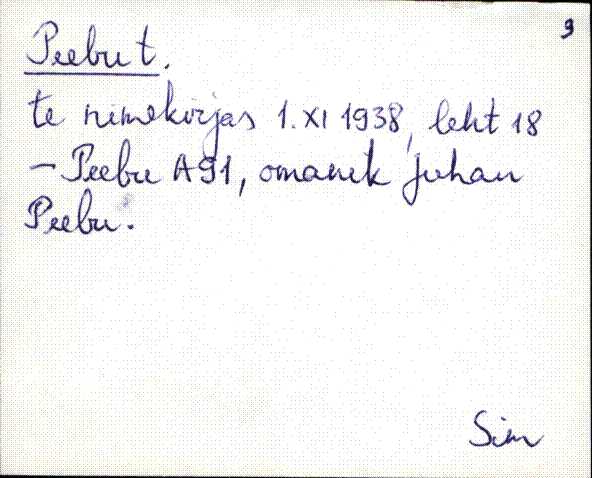 9
Peebu t.
te nimekirjas 1. XI 1938, leht 18
– Peebu A91, omanik Juhan
Peebu.
Sim